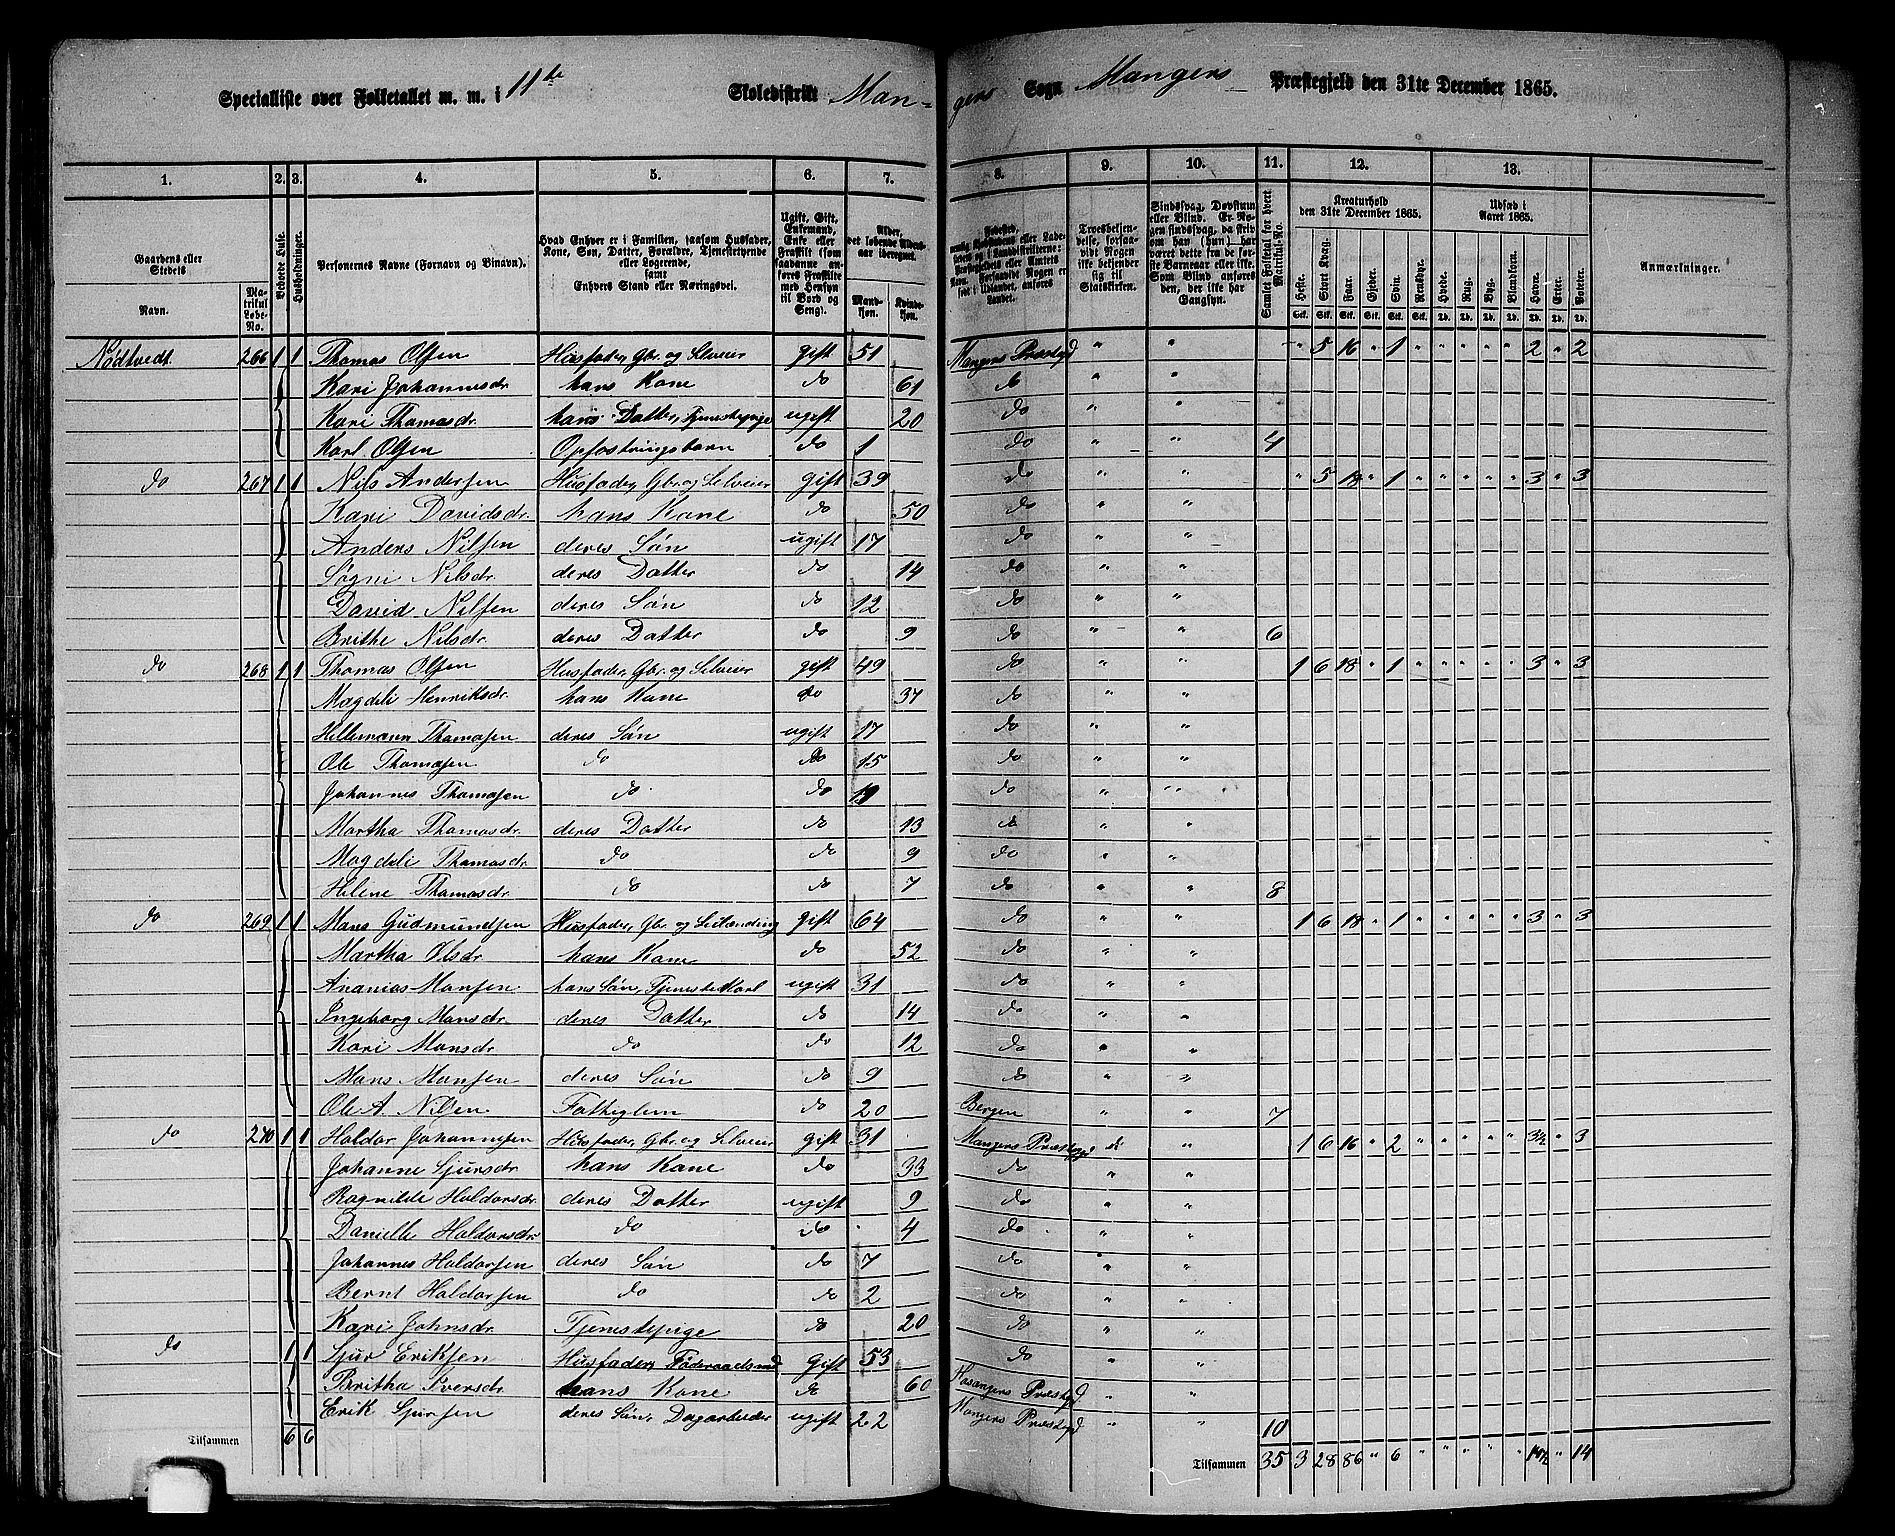 Specialliste over Folketallet m. m. i 11te Skoledistrikt Man-
gers Sogn Mangers Præstegjeld den 31te December 1865.
1. 2. 3. 4. 5. 6. 7. 8. 9. 10. 11. 12. 13.
Gaardens eller Stedets
Navn.
Matrikul Løbe-No.
Beboede Huse.
Husholdninger.
Personernes Navne (Fornavn og Binavn).
Hvad Enhver er i Familien, saasom Husfader, Kone, Søn, Datter, Forældre, Tjenestetyende eller Logerende, samt Enhvers Stand eller Næringsvei.
Ugift, Gift, Enkemand, Enke eller Fraskilt (som saadanne anføres Fraskilte med Hensyn til Bord og Seng).
Alder, det løbende Aldersaar iberegnet.
Mandkjøn.
Kvindekjøn.
Fødested,
Troesbekjendelse, forsaavidt Nogen ikke bekjender sig til Statskirken.
Sindssvag, Døvstum eller Blind. Er Nogen sindssvag, da skriv om han (hun) har været dette fra de første Barneaar eller ikke. Som Blind ansføres den, der ikke har Gangsyn.
Samlet Folketal for hvert Matrikul-No.
Kreaturhold den 31te December 1865.
Heste. Stort Kvæg. Faar. Gjeder. Svin. Rensdyr.
Udsæd i Aaret 1865.
Hvede. Rug. Byg. Blandkorn. Havre. Erter. Poteter.
Anmærkninger.
Nødtvedt 266 1 1 Thomas Olsen Husfader, Gbr. og Selveier gift 51 Mangers Præstgjd " " " 5 16 " 1 " " " " " 2 " 2
Kari Johannesdr. hans Kone do 61 do " "
Kari Thomasdr. hans Datter, Tjenestepige ugift 20 do " "
Karl Olsen Opfostringsbarn do 1 do " " 4
do 267 1 1 Nils Andersen Husfader, Gbr. og Selveier gift 39 do " " " 5 18 " 1 " " " " " 3 " 3
Kari Davidsdr. hans Kone do 50 do " "
Anders Nilsen deres Søn ugift 17 do " "
Søgni Nilsdr deres Datter do 14 do " "
David Nilsen deres Søn do 12 do " "
Brithe Nilsdr. deres Datter do 9 do " " 6
do 268 1 1 Thomas Olsen Husfader, Gbr. og Selveier gift 49 do " " 1 6 18 " 1 " " " " " 3 " 3
Magdeli Henriksdr. hans Kone do 37 do " "
Hellemann Thomasen deres Søn ugift 17 do " "
Ole Thomasen do do 15 do " "
Johannes Thomasen do do do " "
Martha Thomasdr. deres Datter do 13 do " "
Magdeli Thomasdr. do do 9 do " "
Helene Thomasdr. do do 7 do " " 8
do 269 1 1 Mans Gudmundsen Husfader, Gbr. og Leilænding gift 64 do " " 1 6 18 " 1 " " " " " 3 " 3
Martha Olsdr hans Kone do 52 do " "
Ananias Mansen hans Søn, Tjeneste Karl ugift 31 do " "
Ingeborg Mansdr. deres Datter do 14 do " "
Kari Mansdr do do 12 do " "
Mans Mansen deres Søn do 9 do " "
Ole A. Nilsen Fattiglem do 20 Bergen " " 7
do 270 1 1 Haldor Johannesen Husfader, Gbr. og Selveier gift 31 Mangers Præstegjd " " 1 6 16 " 2 " " " " " 3½ " 3
Johanne Sjursdr hans Kone do 33 do " "
Ragnilde Haldorsdr. deres Datter ugift 9 do " "
Danielle Haldorsdr do do 4 do " "
Johannes Haldorsen deres Søn do 7 do " "
Bernt Haldorsen do do 2 do " "
Kari Johnsdr. Tjenestepige do 20 do " "
do 1 1 Sjur Eriksen Husfader, Føderaadsmd gift 53 do " "
Britha Iversdr. hans Kone do 60 Hosangers Præstgjd. " "
Erik Sjursen deres Søn, Dagarbeider ugift 22 Mangers Præstgjd " " 10
Tilsammen 6 6 Tilsammen 35 3 28 86 " 6 " " " " " 14½ " 14